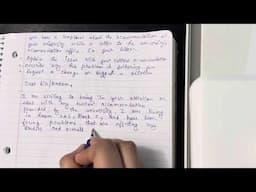 you have a complaint about the accommodation at
your university. Write a letter to the university's
accommodation office. In your letter:
Explain the issue with your current accommodation
describe why this problem is bothering you
Request a change or suggest a solution
Dear Sir/Madam,
I am writing to bring to your attention an
issue with my current accommodation
provided by the university. I am living
in Room and have been
facing problems that are affecting my
studies and overall